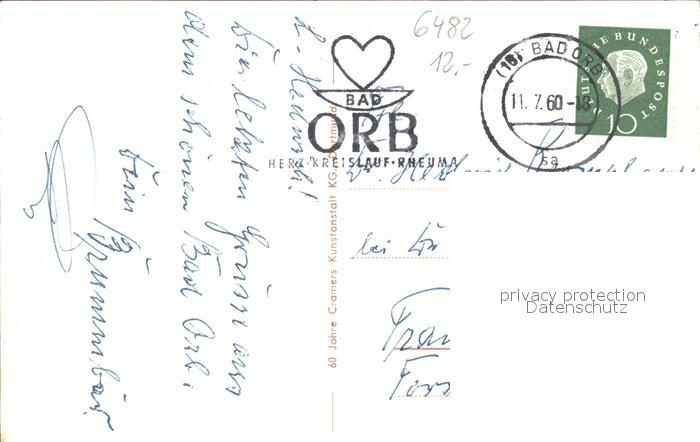 6482
12,-
L. Hedwich!
Die letzten Grüsse aus
dem schönen Bad Orb.
Dein Brummbär
BAD
ORB
HERZ·KREISLAUF·RHEUMA
(16) BAD ORB
11.7.60-18
sa
DEUTSCHE BUNDESPOST
10
60 Jahre Cramers Kunstanstalt KG, Dortmund
bei
Fran
privacy protection
Datenschutz